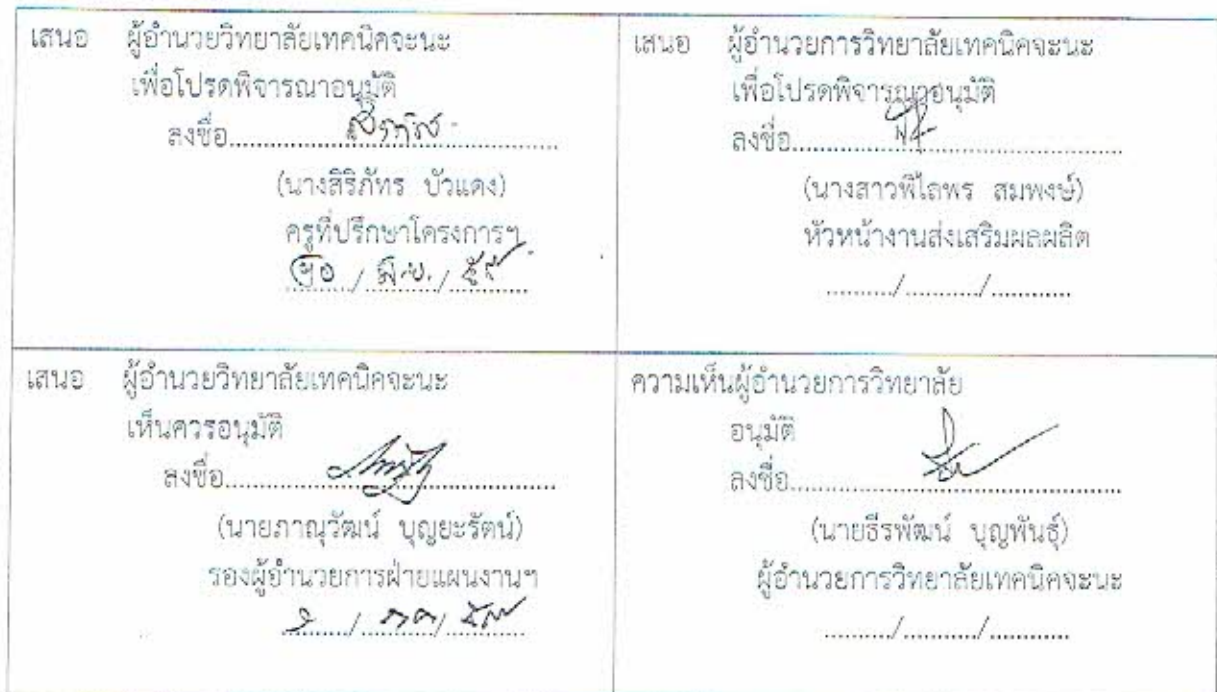 เสนอ ผู้อำนวยวิทยาลัยเทคนิคจะนะ
เพื่อโปรดพิจารณาอนุมัติ
ลงชื่อ..............................................
(นางสิริภัทร บัวแดง)
ครูที่ปรึกษาโครงการฯ
๓๐ / มิ.ย. /
เสนอ ผู้อำนวยการวิทยาลัยเทคนิคจะนะ
เพื่อโปรดพิจารณาอนุมัติ
ลงชื่อ..............................................
(นางสาวพิไลพร สมพงษ์)
หัวหน้างานส่งเสริมผลผลิต
........../........../..........
เสนอ ผู้อำนวยวิทยาลัยเทคนิคจะนะ
เห็นควรอนุมัติ
ลงชื่อ..............................................
(นายภาณุวัฒน์ บุญยะรัตน์)
รองผู้อำนวยการฝ่ายแผนงานฯ
ความเห็นผู้อำนวยการวิทยาลัย
อนุมัติ
ลงชื่อ..............................................
(นายธีรพัฒน์ บุญพันธุ์)
ผู้อำนวยการวิทยาลัยเทคนิคจะนะ
........../........../..........